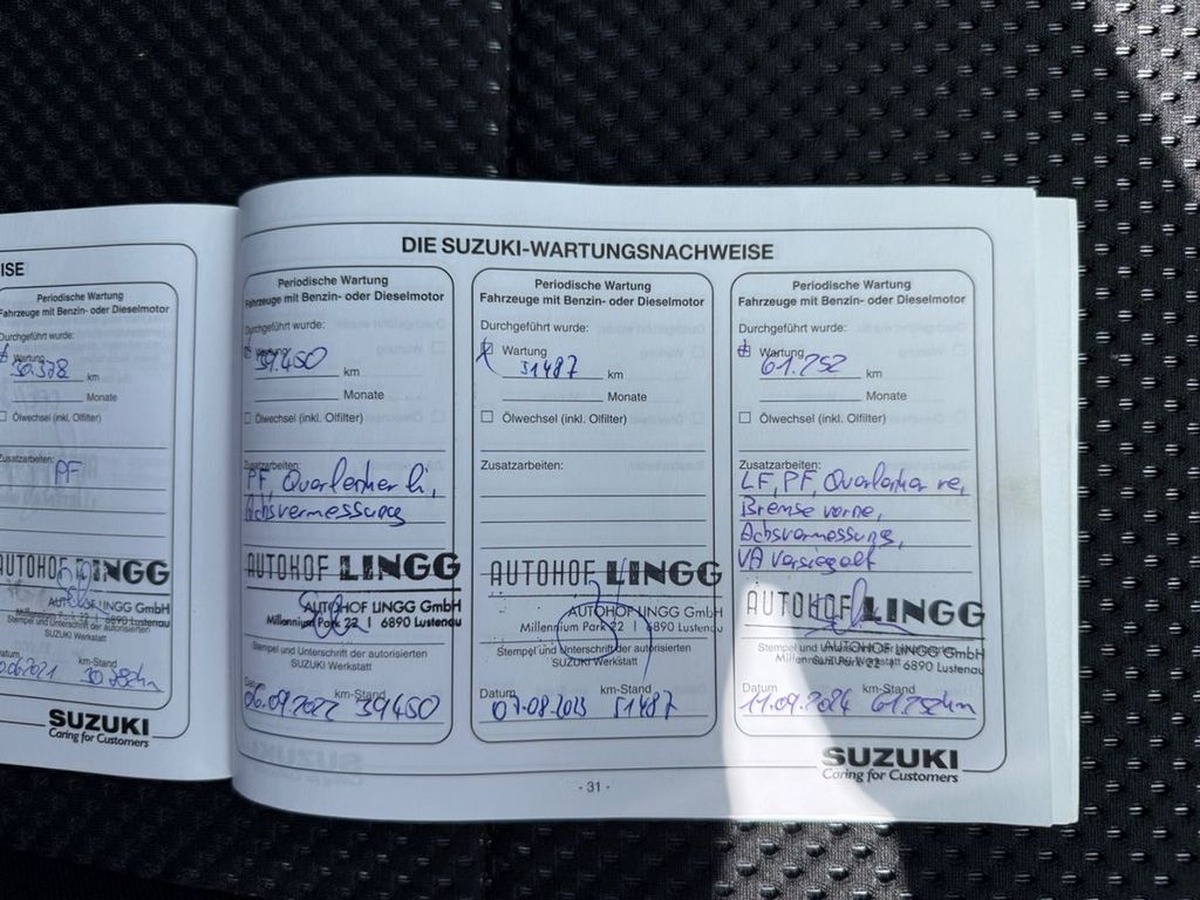 ISE
Periodische Wartung
Fahrzeuge mit Benzin- oder Dieselmotor
Durchgeführt wurde:
Wartung
30.378
km
Monate
Ölwechsel (inkl. Ölfilter)
Zusatzarbeiten:
PF
AUTOHOF LINGG
AUTOHOF LINGG GmbH
Millennium Park 22 | 6890 Lustenau
Stempel und Unterschrift der autorisierten
SUZUKI Werkstatt
Datum km-Stand
.06.2021
SUZUKI
Caring for Customers
DIE SUZUKI-WARTUNGSNACHWEISE
Periodische Wartung
Fahrzeuge mit Benzin- oder Dieselmotor
Durchgeführt wurde:
Wartung
39.450 km
Monate
Ölwechsel (inkl. Ölfilter)
Zusatzarbeiten:
PF, Querlenker li,
Achsvermessung
AUTOHOF LINGG
AUTOHOF LINGG GmbH
Millennium Park 22 | 6890 Lustenau
Stempel und Unterschrift der autorisierten
SUZUKI Werkstatt
Datum km-Stand
06.09.2022 39450
Periodische Wartung
Fahrzeuge mit Benzin- oder Dieselmotor
Durchgeführt wurde:
Wartung
51487 km
Monate
Ölwechsel (inkl. Olfilter)
Zusatzarbeiten:
AUTOHOF LINGG
AUTOHOF LINGG GmbH
Millennium Park 22 | 6890 Lustenau
Stempel und Unterschrift der autorisierten
SUZUKI Werkstatt
Datum km-Stand
07.08.2023 51487
Periodische Wartung
Fahrzeuge mit Benzin- oder Dieselmotor
Durchgeführt wurde:
Wartung
61.252 km
Monate
Ölwechsel (inkl. Ölfilter)
Zusatzarbeiten:
LF, PF, Querlenker re,
Bremse vorne,
Achsvermessung,
VA versiegelt
AUTOHOF LINGG
AUTOHOF LINGG GmbH
Millennium Park 22 | 6890 Lustenau
Stempel und Unterschrift der autorisierten
SUZUKI Werkstatt
Datum km-Stand
11.09.2024 61252km
SUZUKI
Caring for Customers
- 31 -